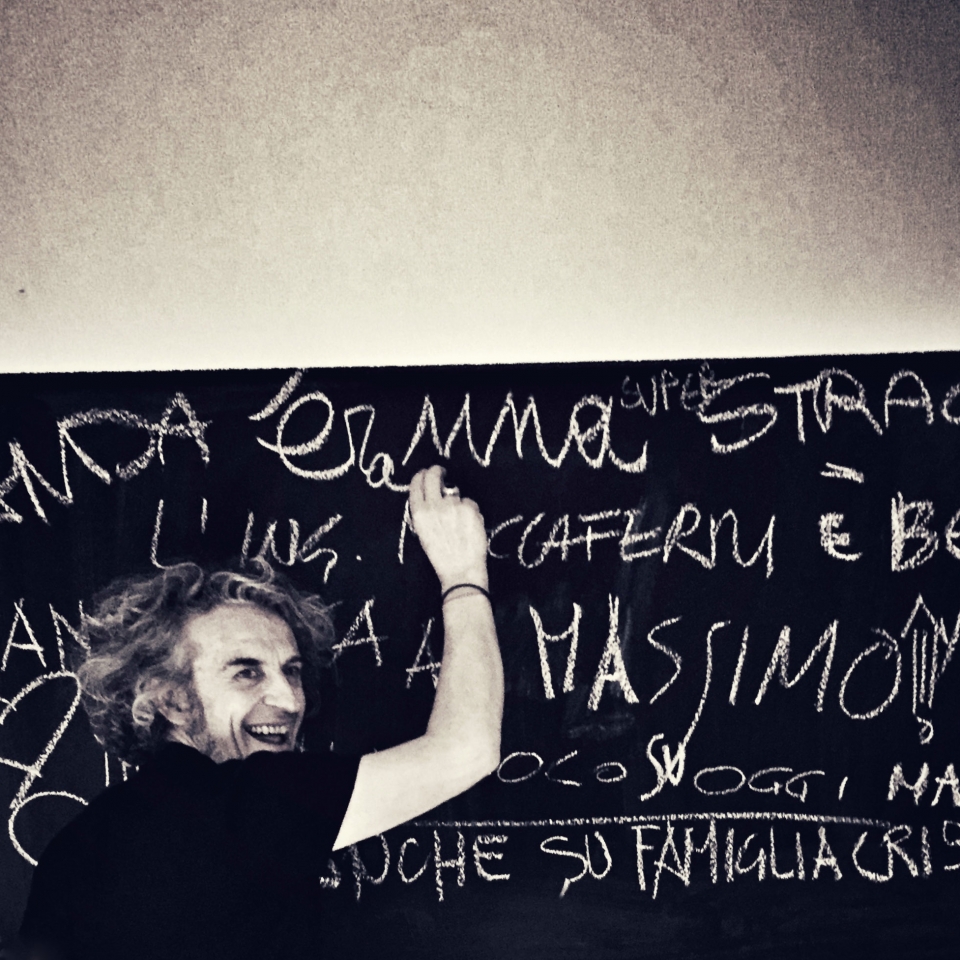 NDA Gemma SUPER STRAC
L' ING. CCAFERRI È BE
AN A A MASSIMO
OCO SU OGGI, MA
ANCHE SU FAMIGLIA CRIS